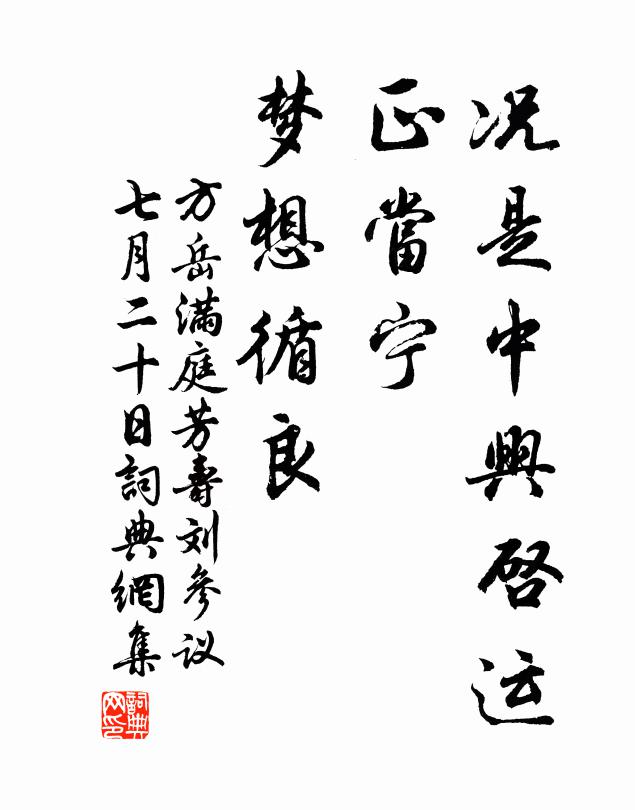 况是中興啓运
正當宁
梦想循良
方岳滿庭芳壽刘參议
七月二十日詞典網集
詞典网印